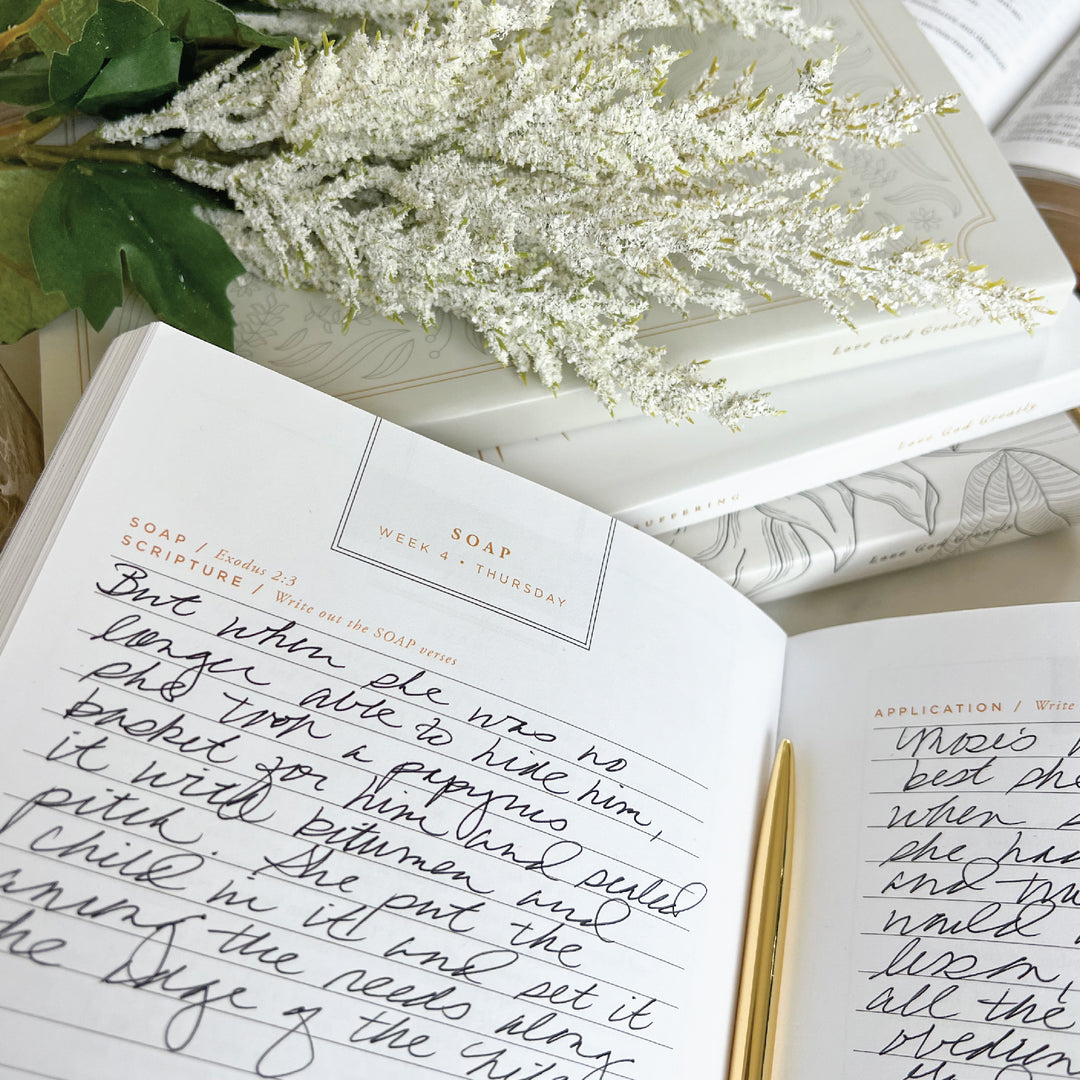 Love God Greatly
Love God Greatly
SUFFERING
Love God Greatly
SOAP
WEEK 4 • THURSDAY
SOAP / Exodus 2:3
SCRIPTURE / Write out the SOAP verses
But when she was no
longer able to hide him,
she took a papyrus
basket for him and sealed
it with bitumen and
pitch. She put the
child in it and set it
among the reeds along
the edge of the Nile
APPLICATION / Write
best she
when
she had
and
would
lesson,
all the